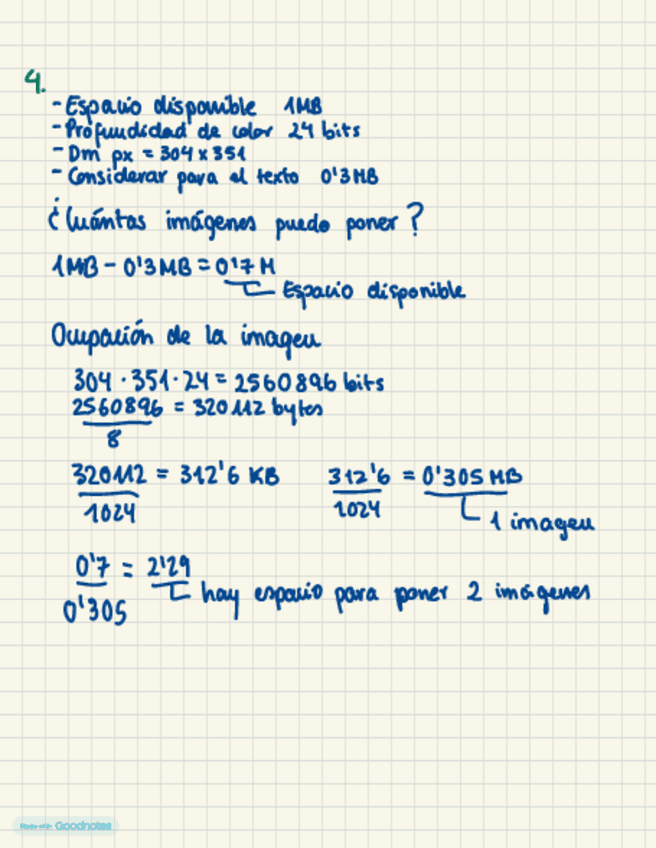 4.
- Espacio disponible 1MB
- Profundidad de color 24 bits
- Dm px = 304 x 351
- Considerar para el texto 0'3MB
¿Cuántas imágenes puedo poner?
1MB - 0'3MB = 0'7 M
Espacio disponible
Ocupación de la imagen
304 · 351 · 24 = 2560896 bits
2560896 = 320112 bytes
8
320112 = 312'6 KB 312'6 = 0'305 MB
1024 1024
1 imagen
0'7 = 2'29
0'305 hay espacio para poner 2 imágenes
Made with Goodnotes